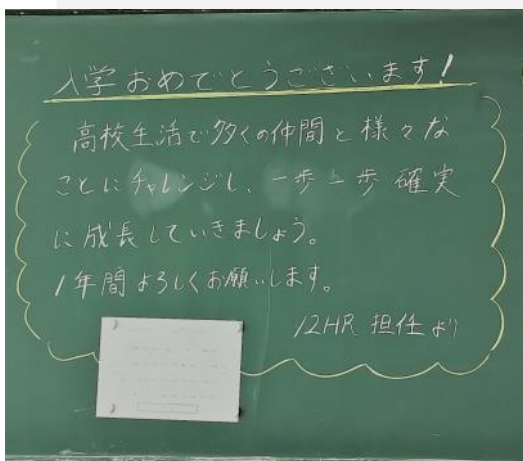 入学おめでとうございます!
高校生活で多くの仲間と様々な
ことにチャレンジし、一歩一歩確実
に成長していきましょう。
1年間よろしくお願いします。
12HR 担任より